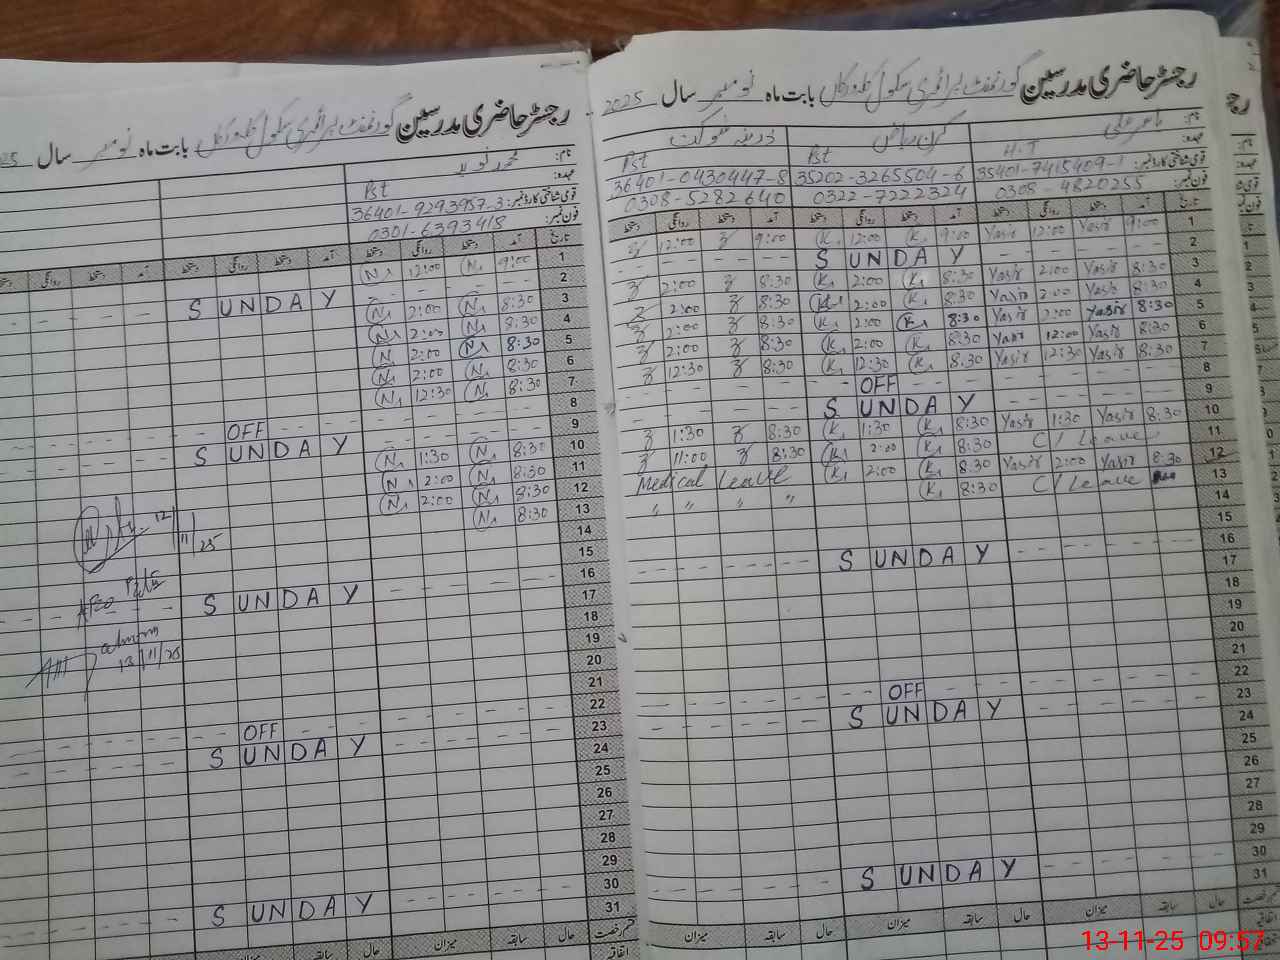 رجسٹر حاضری مدرسین گورنمنٹ پرائمری سکول بابت ماہ نومبر سال 2025
نام: یاسر علی
عہدہ: H.T
قومی شناختی کارڈ نمبر: 35401-7415409-1
فون نمبر: 0305-4820255
کرن ریاض
Pst
35202-3265504-6
0322-7222324
Pst
36401-0430447-8
0308-5282640
تاریخ آمد دستخط روانگی دستخط آمد دستخط روانگی دستخط آمد دستخط روانگی دستخط
1 9:00 Yasir 12:00 Yasir 9:00 K 12:00 K 9:00 12:00
2 S U N D A Y
3 8:30 Yasir 2:00 Yasir 8:30 K 2:00 K 8:30 2:00
4 8:30 Yasir 2:00 Yasir 8:30 K 2:00 K 8:30 2:00
5 8:30 Yasir 2:00 Yasir 8:30 K 2:00 K 8:30 2:00
6 8:30 Yasir 12:00 Yasir 8:30 K 2:00 K 8:30 2:00
7 8:30 Yasir 12:30 Yasir 8:30 K 12:30 K 8:30 12:30
8 OFF
9 S U N D A Y
10 8:30 Yasir 1:30 Yasir 8:30 K 1:30 K 8:30 1:30
11 C/Leave 8:30 K 2:00 K 8:30 11:00
12 8:30 Yasir 2:00 Yasir 8:30 K 2:00 K Medical Leave
13 C/Leave 8:30 K " " " "
14
15
16 S U N D A Y
17
18
19
20
21
22 OFF
23 S U N D A Y
24
25
26
27
28
29
30 S U N D A Y
31
قسم رخصت حال سابقہ میزان حال سابقہ میزان حال سابقہ میزان
اتفاقیہ
رجسٹر حاضری مدرسین گورنمنٹ پرائمری سکول بابت ماہ نومبر سال 25
نام: محمد نوید
عہدہ: Pst
قومی شناختی کارڈ نمبر: 36401-9293957-3
فون نمبر: 0301-6393418
تاریخ آمد دستخط روانگی دستخط آمد دستخط روانگی دستخط آمد دستخط روانگی دستخط
1 9:00 N 12:00 N
2 S U N D A Y
3 8:30 N 2:00 N
4 8:30 N 2:00 N
5 8:30 N 2:00 N
6 8:30 N 2:00 N
7 8:30 N 12:30 N
8 OFF
9 S U N D A Y
10 8:30 N 1:30 N
11 8:30 N 2:00 N
12 8:30 N 2:00 N
13 8:30 N
14
15
16 S U N D A Y
17
18
19
20
21
22 OFF
23 S U N D A Y
24
25
26
27
28
29
30 S U N D A Y
31
قسم رخصت حال سابقہ میزان حال سابقہ میزان
اتفاقیہ
12/11/25
13/11/25
13-11-25 09:57